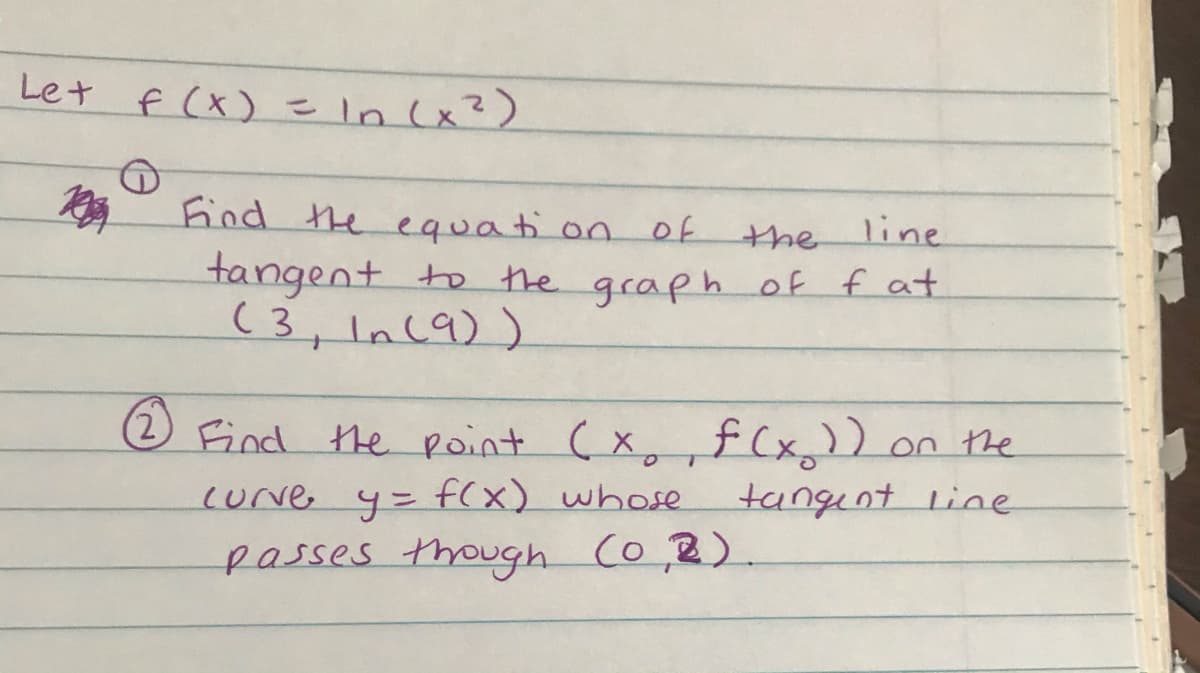 Let f(x) = ln(x²)
①
Find the equation of the line
tangent to the graph of f at
(3, ln(9))
② Find the point (x₀, f(x₀)) on the
curve y = f(x) whose tangent line
passes though (0,2).